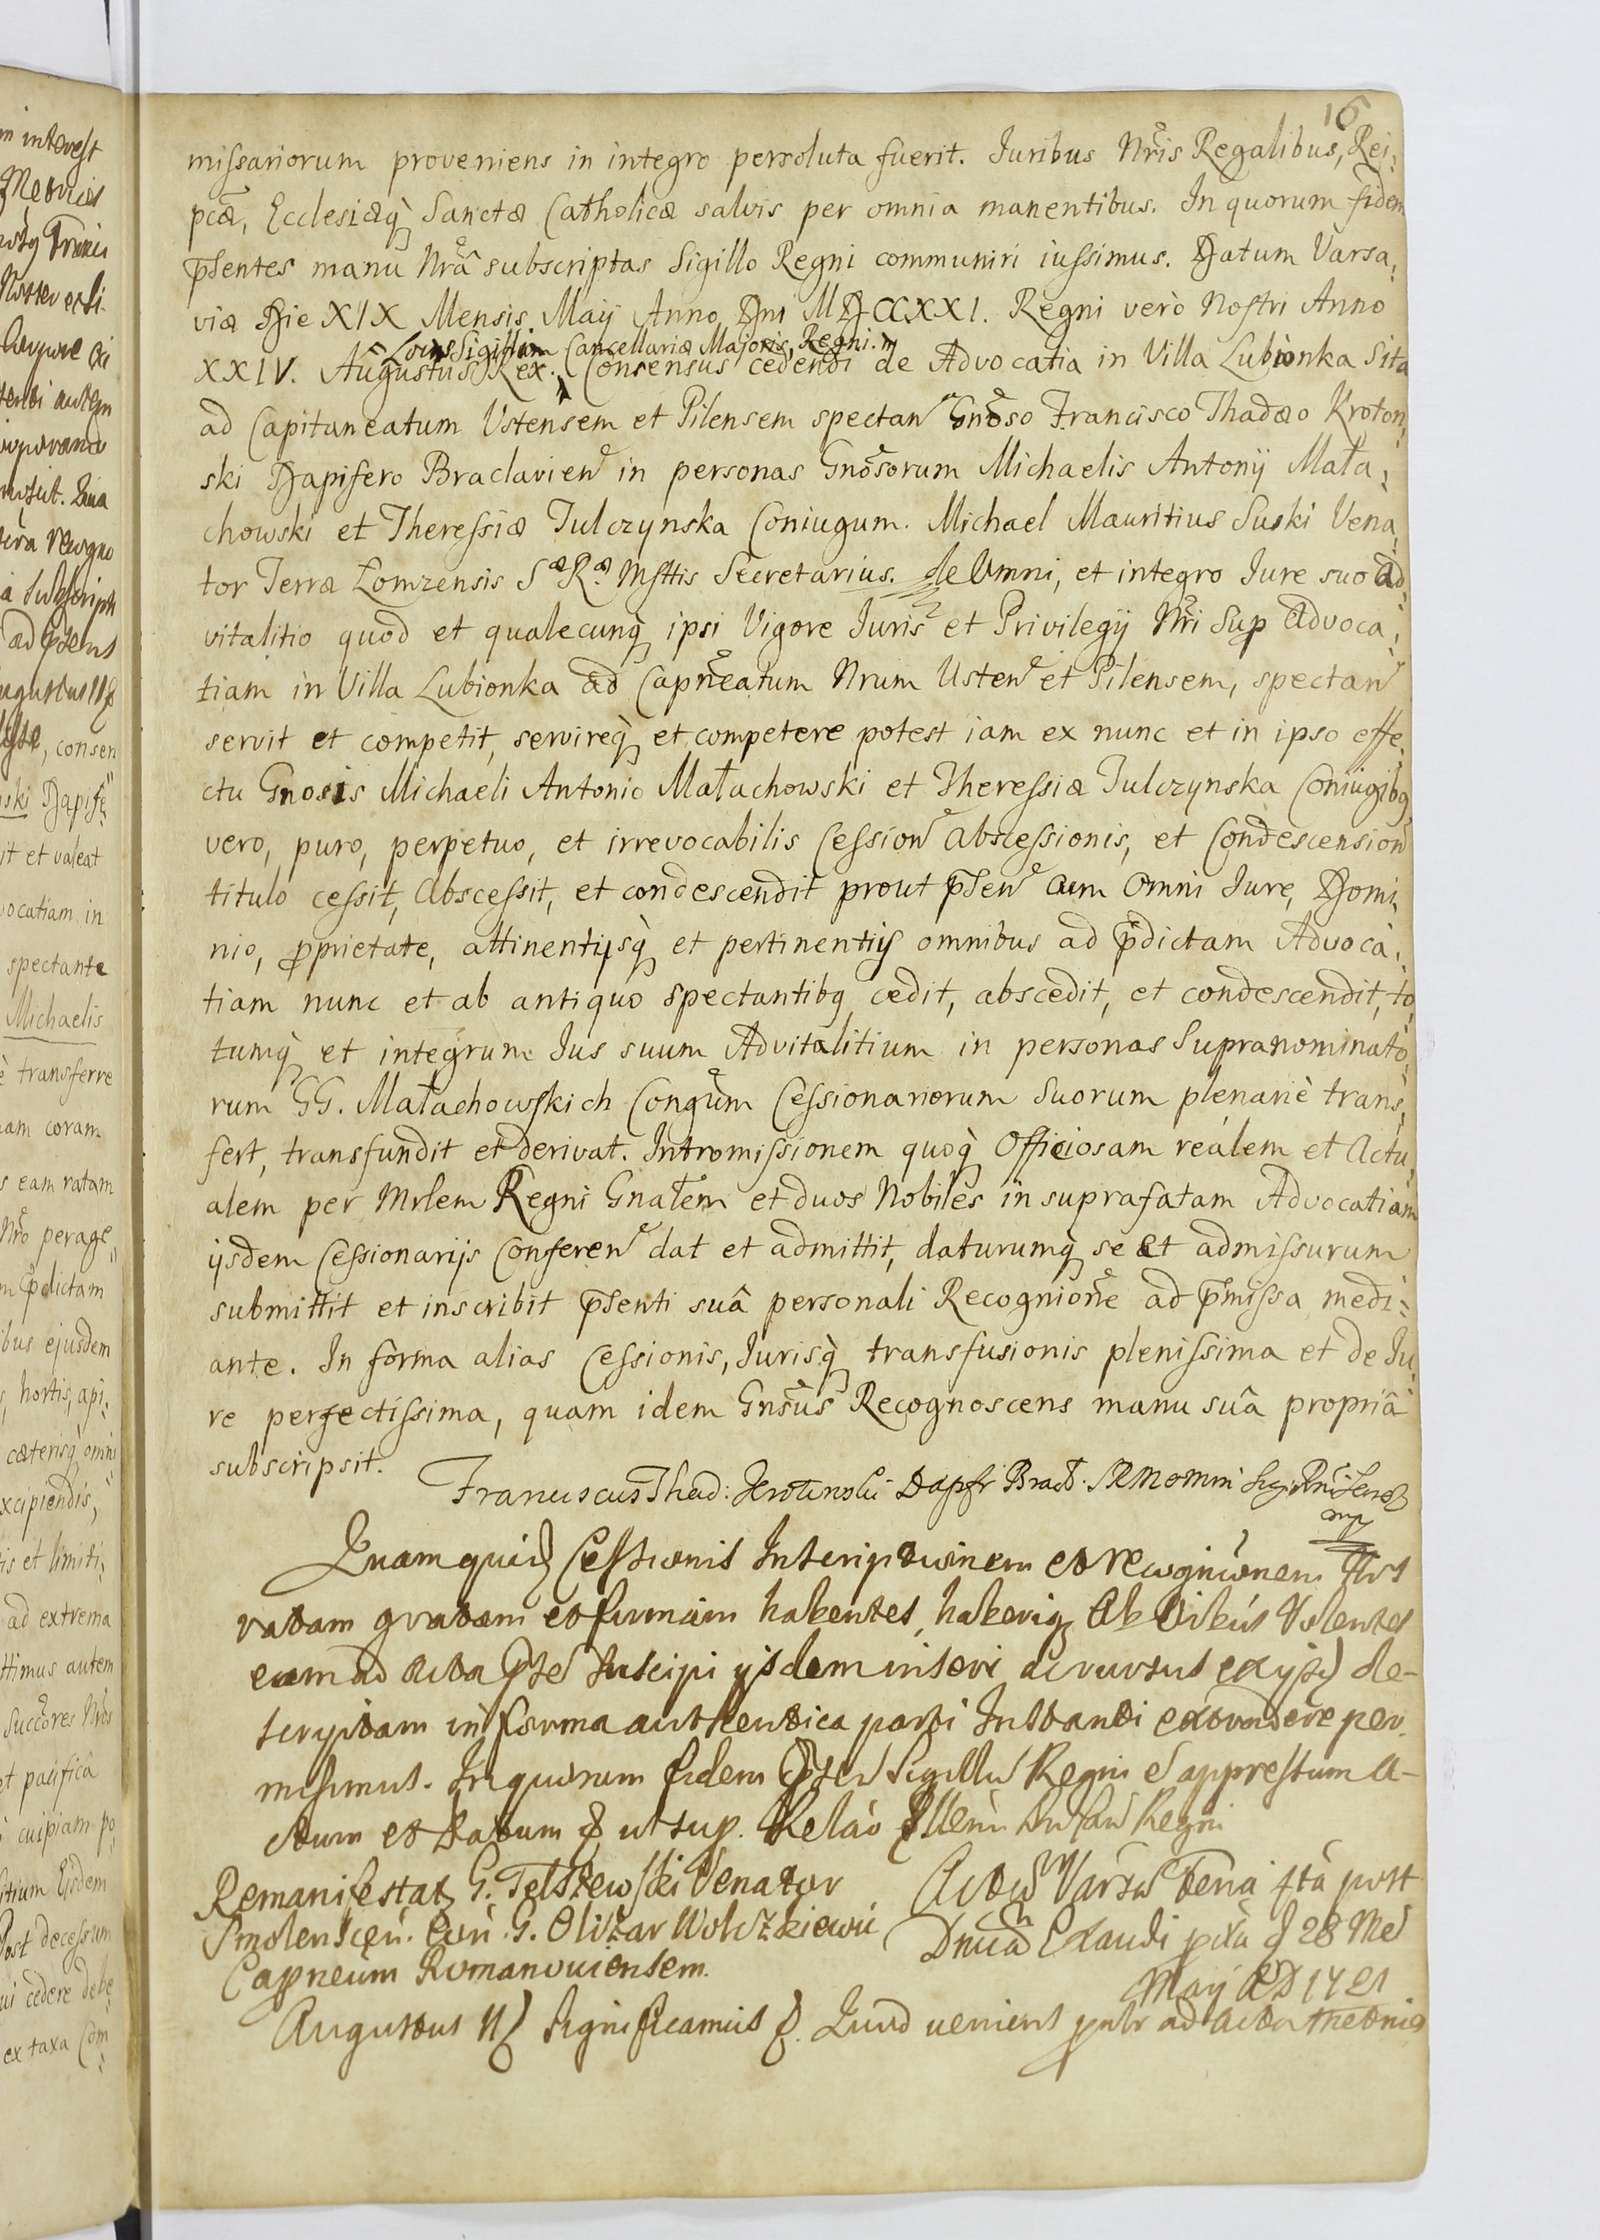 16
missariorum proveniens in integro persoluta fuerit. Juribus Nris Regalibus, Rei:
pcæ, Ecclesiæq Sanctæ Catholicæ salvis per omnia manentibus. In quorum fidem
psentes manu Nrâ subscriptas Sigillo Regni communiri iussimus. Datum Varsa:
viæ Die XIX Mensis Maÿ Anno Dni MDCCXXI. Regni verò Nostri Anno
Locus Sigilli Cancellariæ Majoris Regni.
XXIV. Augustus Rex. Consensus cedendi de Advocatia in Villa Lubionka Sita
ad Capitaneatum Ustensem et Pilensem spectan Gnoso Francisco Thadæo Kroton:
ski Dapifero Braclavien in personas Gnosorum Michaelis Antonÿ Mała:
chowski et Theressiæ Tulczynska Coniugum. Michael Mauritius Suski Vena:
tor Terræ Lomzensis Sæ Ræ Mttis Secretarius. de Omni, et integro Jure suo ad:
vitalitio quod et qualecunq ipsi Vigore Juris et Privilegÿ Nri Sup Advoca:
tiam in Villa Lubionka ad Capneatum Nrum Usten et Pilensem, spectan
servit et competit, servireq et competere potest iam ex nunc et in ipso effe:
ctu Gnosis Michaeli Antonio Małachowski et Theressiæ Tulczynska Coniugibq
vero, puro, perpetuo, et irrevocabilis Cession Abscessionis, et Condescension
titulo cessit, Abscessit, et condescendit prout psen cum Omni Jure, Domi:
nio, pprietate, attinentijsq et pertinentijs omnibus ad pdictam Advoca:
tiam nunc et ab antiquo spectantibq cedit, abscedit, et condescendit, to:
tumq et integrum Jus suum Advitalitium in personas Supranominato:
rum GG. Małachowskich Congum Cessionariorum Suorum plenariè trans:
fert, transfundit et derivat. Intromissionem quoq Officiosam reàlem et Actu:
alem per Mrlem Regni Gnalem et duos Nobiles in suprafatam Advocatiam
ijsdem Cessionarijs Conferen dat et admittit, daturumq se et admissurum
submittit et inscribit psenti suâ personali Recognione ad pmissa medi:
ante. In forma alias Cessionis, Jurisq transfusionis plenissima et de Ju:
re perfectissima, quam idem Gnsus Recognoscens manu suâ propriâ
subscripsit.
Franciscus Thad: Krotowski Dapfr Bracl.
mp
Quam quid Cessionis Inscriptionem et recognionem
ratam gratam et firmam habentes, haberiq Ab Volentes
eam ad Acta pse suscipi ijsdem inseri ac rursus ex ijsd de-
scriptam in forma authentica parti Instanti extradere per-
misimus. In quorum fidem psen Sigillu Regni e appressum A-
ctum et Datum ut sup. Relao Regni
Remanifestat G. Telszewski Venator
Smolenscen. G. Olizar Wolczkiewic
Capneum Romanoviensem.
Actu Varsa feria post
Dnica Exaudi 28 Mes
Maÿ AD 1721
Augustus Significamus Quod veniens ad Acta